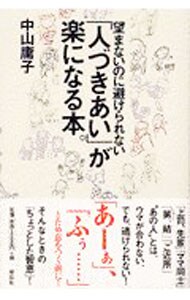 望まないのに避けられない
「人づきあい」が
楽になる本
中山庸子
ご近所
“あの人”とは、
ウマが合わない、
でも、避けられない!
「あーぁ」
「ふぅ……」
そんなときの
「ちょっとした智恵」!
祥伝社